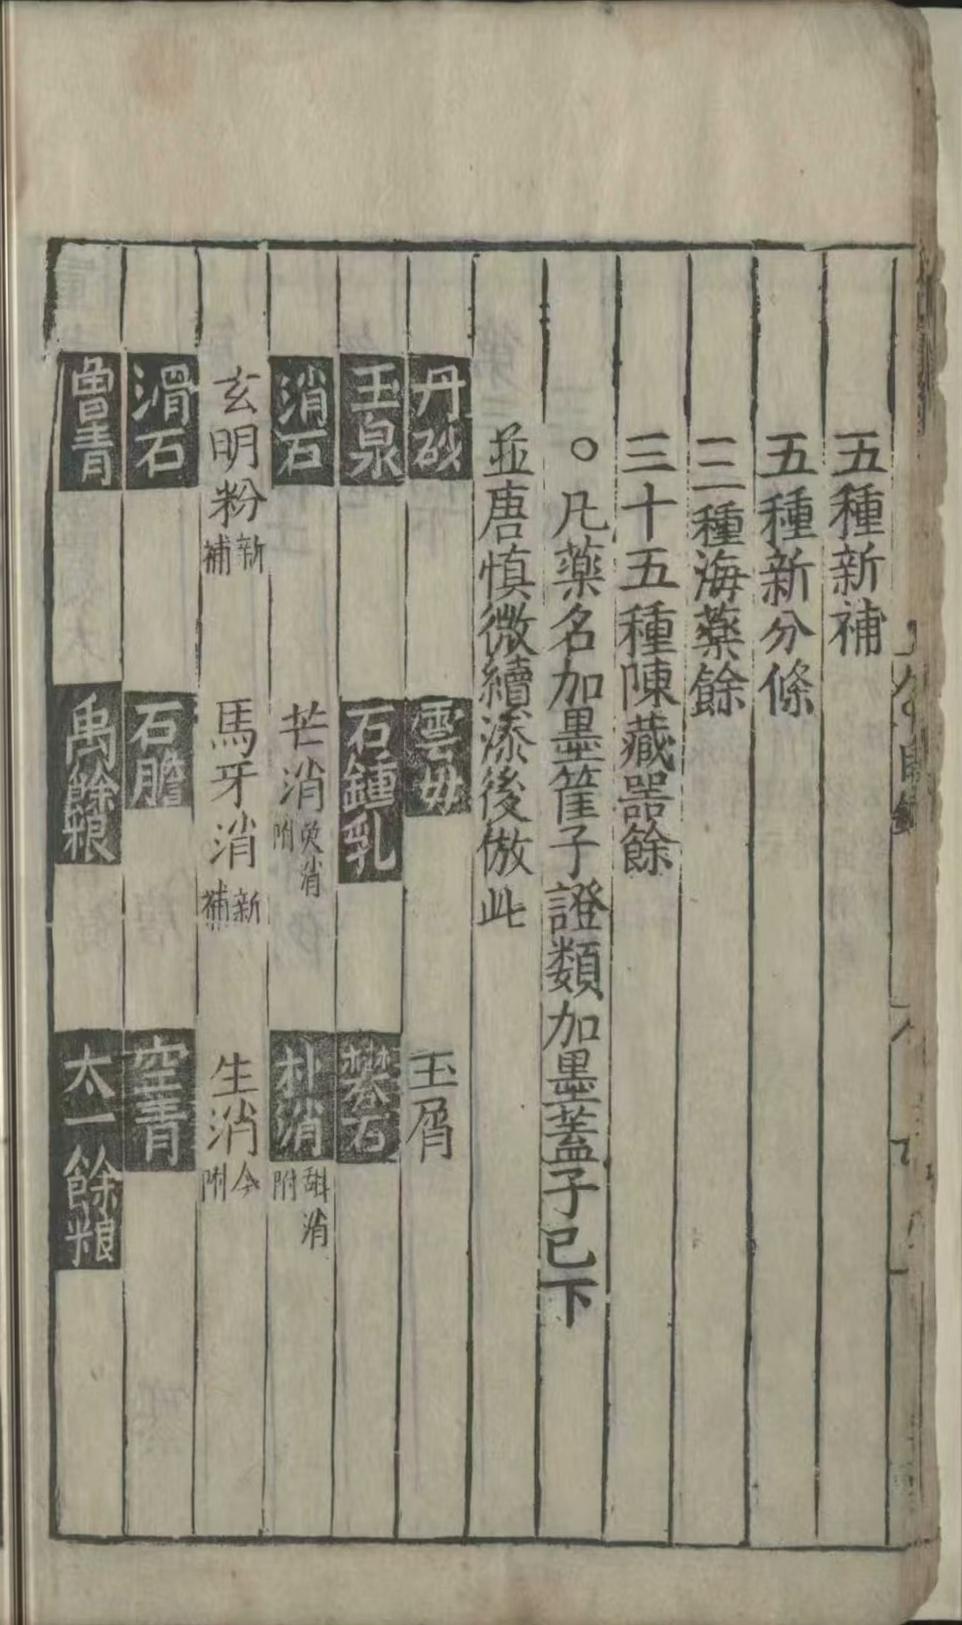 五種新補
五種新分條
三種海藥餘
三十五種陳藏器餘
○凡藥名加墨筐子證類加墨蓋子已下
並唐慎微續添後倣此
丹砂 雲母 玉屑
玉泉 石鍾乳 礬石
消石 芒消 英消附 朴消 甜消附
玄明粉 新補 馬牙消 新補 生消 今附
滑石 石膽 空青
曾青 禹餘粮 太一餘粮